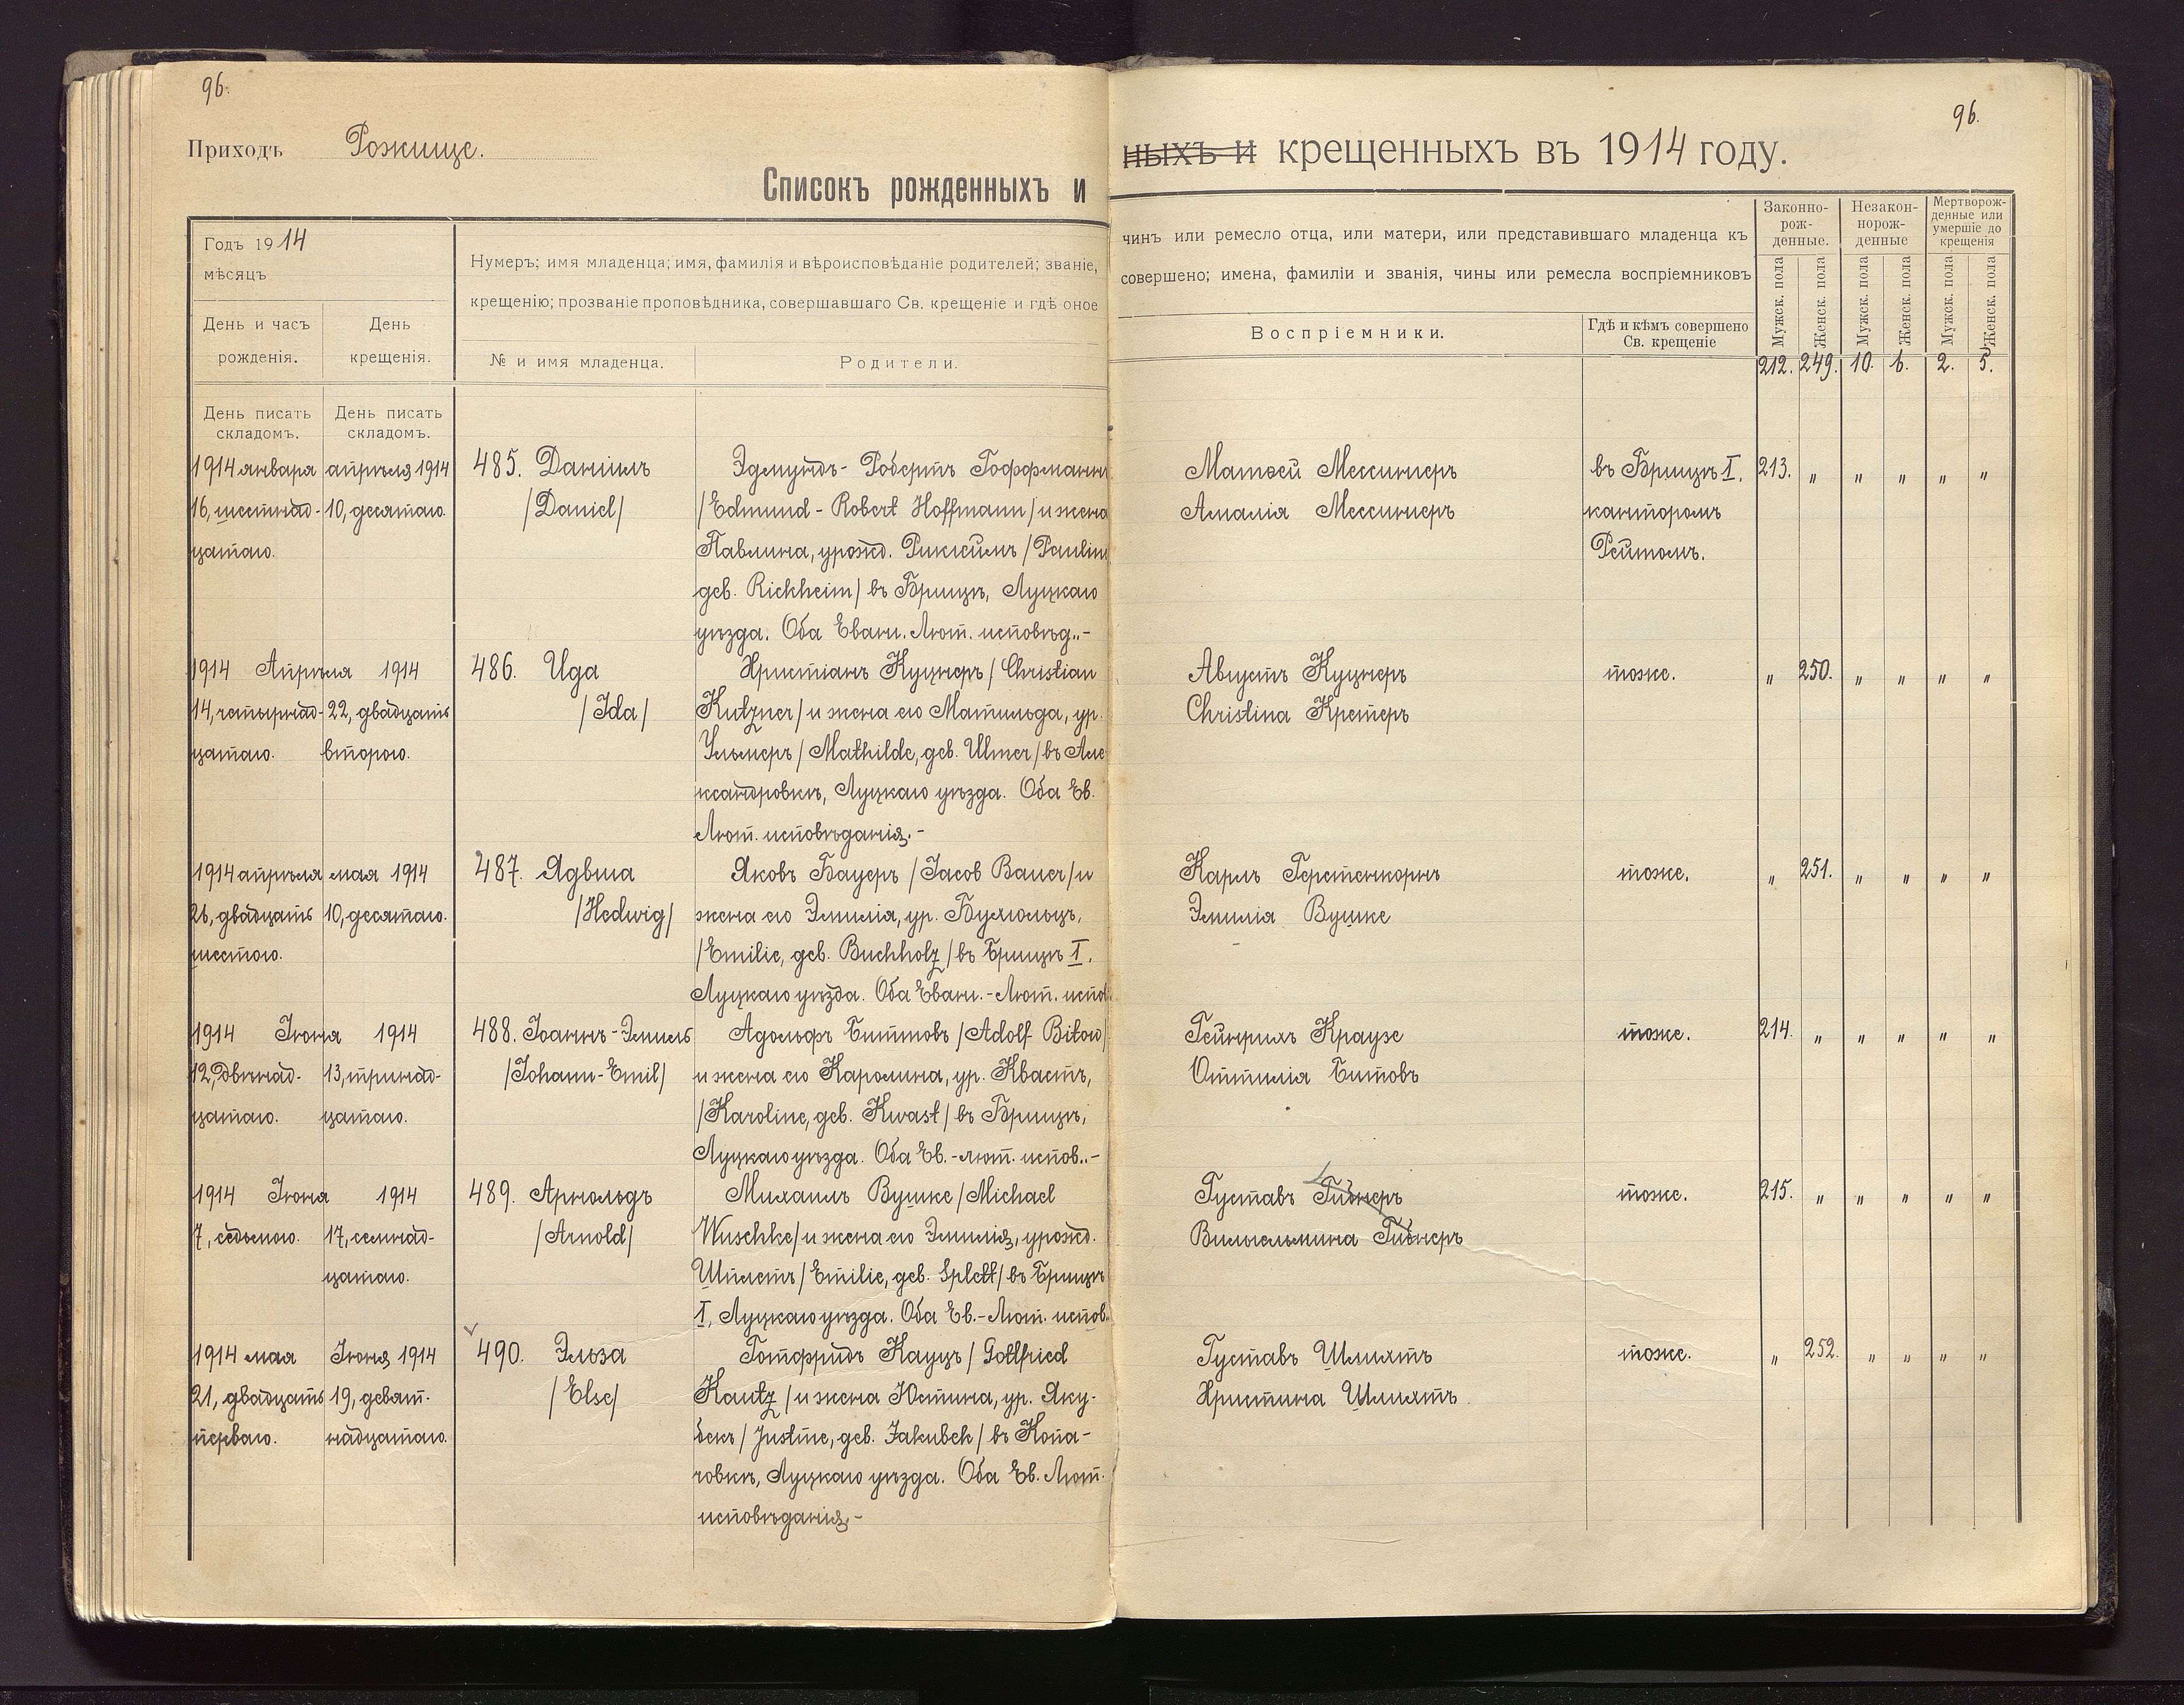 96.
Приходъ Рожище.
Списокъ рожденныхъ и
Годъ 1914
мѣсяцъ
День и часъ рожденія.
День крещенія.
Нумеръ; имя младенца; имя, фамилія и вѣроисповѣданіе родителей; званіе,
крещенію; прозваніе проповѣдника, совершавшаго Св. крещеніе и гдѣ оное
№ и имя младенца.
Родители.
День писать складомъ.
День писать складомъ.
1914 января апрѣля 1914 485. Даніилъ Эдмундъ-Робертъ Гоффманнъ
16, шестнад- 10, десятаго. /Daniel/ /Edmund-Robert Hoffmann/ и жена
цатаго. Павлина, урожд. Риккеймъ /Pauline
geb. Rickheim/ въ Брищѣ, Луцкаго
уѣзда. Оба Еванг. Лют. исповѣд..-
1914 Апрѣля 1914 486. Ида Христіанъ Куцнеръ /Christian
14, четырнад- 22, двадцать /Ida/ Kutzner/ и жена его Матильда, ур.
цатаго. второго. Ульмеръ /Mathilde, geb. Ulmer/ въ Але
ксандровкѣ, Луцкаго уѣзда. Оба Ев.
Лют. исповѣданія.-
1914 апрѣля мая 1914 487. Ядвига Яковъ Бауеръ /Jacob Bauer/ и
26, двадцать 10, десятаго. /Hedwig/ жена его Эмилія, ур. Бухгольцъ,
шестого. /Emilie, geb. Buchholz/ въ Брищѣ I.
Луцкаго уѣзда. Оба Еванг.-Лют. испов.
1914 Іюня 1914 488. Іоаннъ-Эмиль Адольфъ Биттовъ /Adolf Bitow/
12, двѣнад- 13, тринад- /Johann-Emil/ и жена его Каролина, ур. Квастъ,
цатаго. цатаго. /Karoline, geb. Kwast/ въ Брищѣ,
Луцкаго уѣзда. Оба Ев.-лют. испов..-
1914 Іюня 1914 489. Арнольдъ Михаилъ Вушке /Michael
7, седьмого. 17, семнад- /Arnold/ Wuschke/ и жена его Эмилія, урожд.
цатаго. Шплетъ /Emilie, geb. Splett/ въ Брищѣ
I, Луцкаго уѣзда. Оба Ев.-Лют. испов.
1914 мая Іюня 1914 490. Эльза Готфридъ Кауцъ /Gottfried
21, двадцать 19, девят- /Else/ Kautz/ и жена Юстина, ур. Яку-
перваго. надцатаго. бекъ /Justine, geb. Jakubek/ въ Копа-
човкѣ, Луцкаго уѣзда. Оба Ев. Лют.
исповѣданія.-
96.
ныхъ и крещенныхъ въ 1914 году.
чинъ или ремесло отца, или матери, или представившаго младенца къ
совершено; имена, фамиліи и званія, чины или ремесла воспріемниковъ
Воспріемники.
Гдѣ и кѣмъ совершено
Св. крещеніе
Законно-
рож-
денные.
Незакон-
норож-
денные
Мертворож-
денные или
умершіе до
крещенія
Мужск. пола Женск. пола Мужск. пола Женск. пола Мужск. пола Женск. пола
212. 249. 10. 6. 2. 5.
Матвей Мессинеръ въ Брищѣ I. 213. " " " " "
Амалія Мессинеръ канторомъ
Рейтомъ.
Августъ Куцнеръ тоже. " 250. " " " "
Christina Кретеръ
Карлъ Герстенкорнъ тоже. " 251. " " " "
Эмилія Вушке
Гейнрихъ Краузе тоже. 214. " " " " "
Оттилія Битовъ
Густавъ тоже. 215. " " " " "
Вильгельмина
Густавъ Шлихтъ тоже. " 252. " " " "
Христина Шлихтъ.